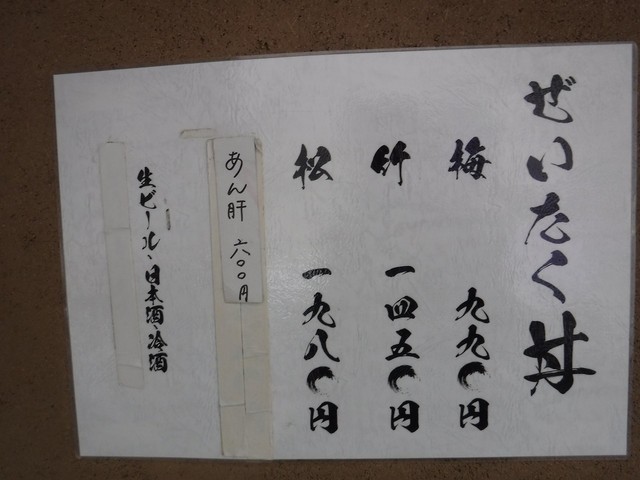 ぜいたく丼
梅 九九〇円
竹 一四五〇円
松 一九八〇円
あん肝 六〇〇円
生ビール、日本酒、冷酒